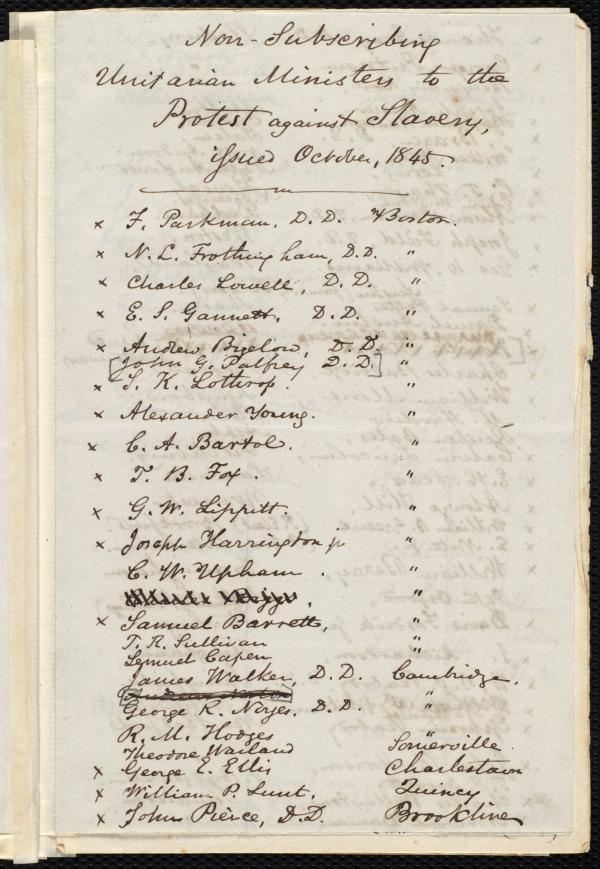 Non-Subscribing
Unitarian Ministers to the
Protest against Slavery,
issued October, 1845.
x F. Parkman, D.D. Boston.
x N. L. Frothingham, D.D. "
x Charles Lowell, D.D. "
x E. S. Gannett, D.D. "
x Andrew Bigelow, D.D. "
[John G. Palfrey D.D.] "
x S. K. Lothrop. "
x Alexander Young. "
x C. A. Bartol. "
x T. B. Fox. "
x G. W. Lippitt. "
x Joseph Harrington jr "
C. W. Upham . "
x Samuel Barrett, "
T. R. Sullivan "
Lemuel Capen "
James Walker, D.D. Cambridge.
[Andrews Norton] "
George R. Noyes, D.D. "
R. M. Hodges "
Theodore Somerville.
x George E. Ellis Charlestown
x William P. Lunt. Quincy
x John Pierce, D.D. Brookline